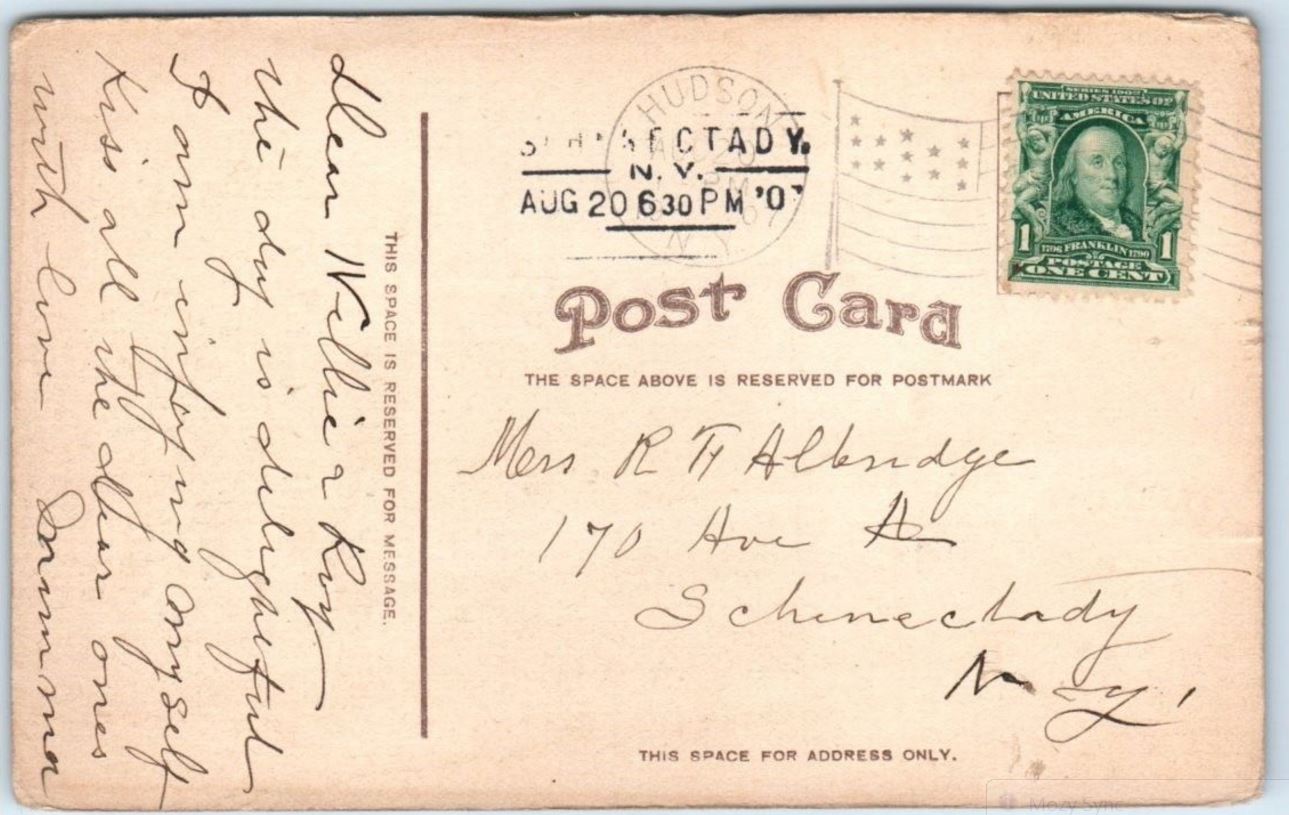 Dear Willie & Roy
the day is delightful
I am injoying myself
Kiss all the dear ones
with love Mamma
THIS SPACE IS RESERVED FOR MESSAGE.
HUDSON
N.Y.
SCHENECTADY.
N.Y.
AUG 20 630 PM '07
SERIES 1902
UNITED STATES OF
AMERICA
1706 FRANKLIN 1790
POSTAGE
1 ONE CENT 1
Post Card
THE SPACE ABOVE IS RESERVED FOR POSTMARK
Mrs R H Albridge
170 Ave A
Schenectady
N.Y.
THIS SPACE FOR ADDRESS ONLY.
Mozy Sync